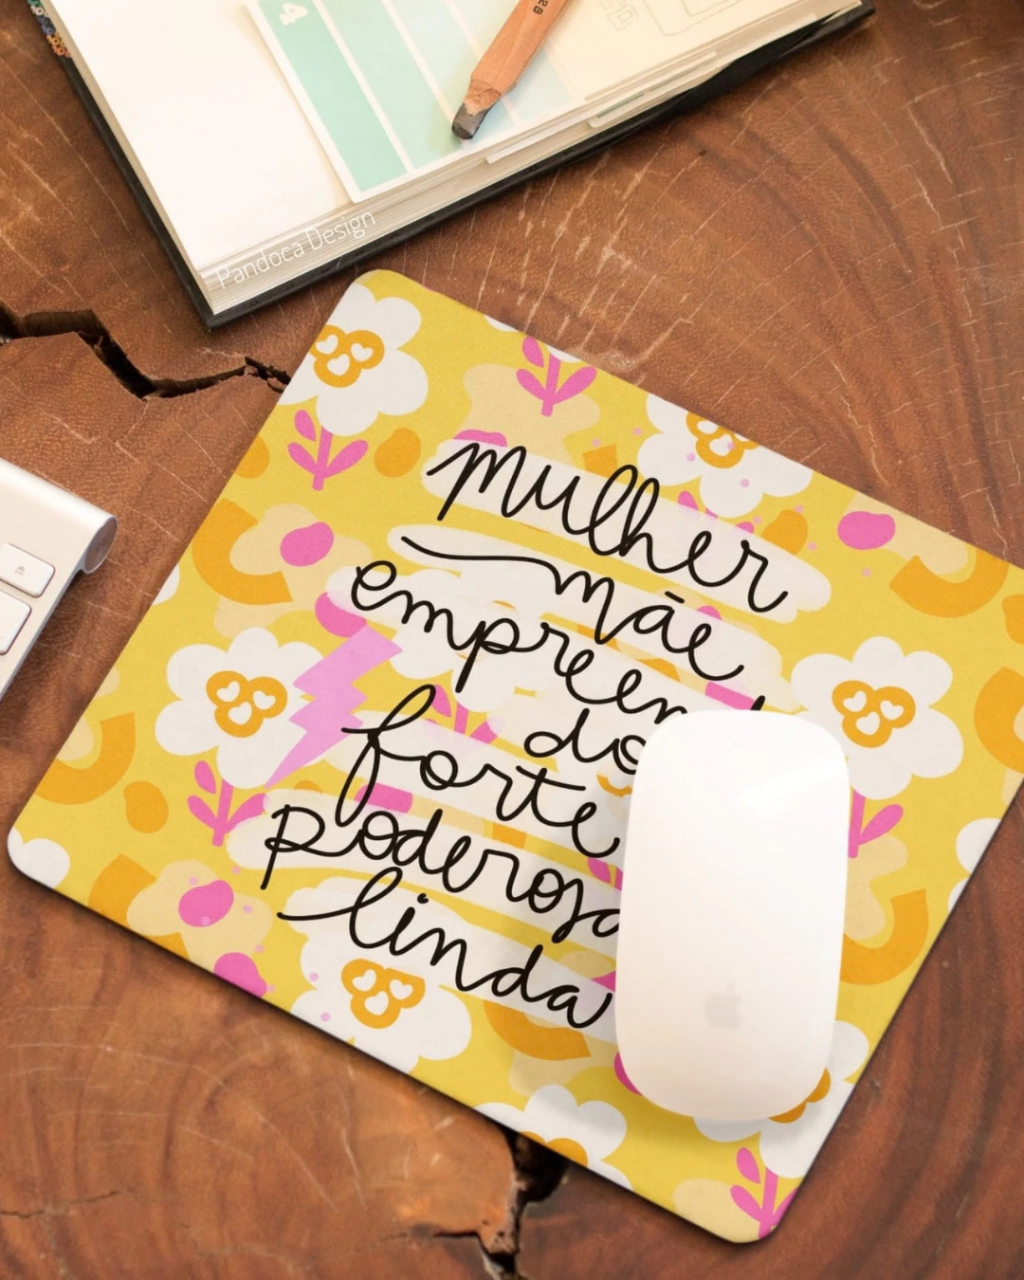 4
2B
Pandoca Design
mulher
mãe
empreen
do
forte
poderosa
linda